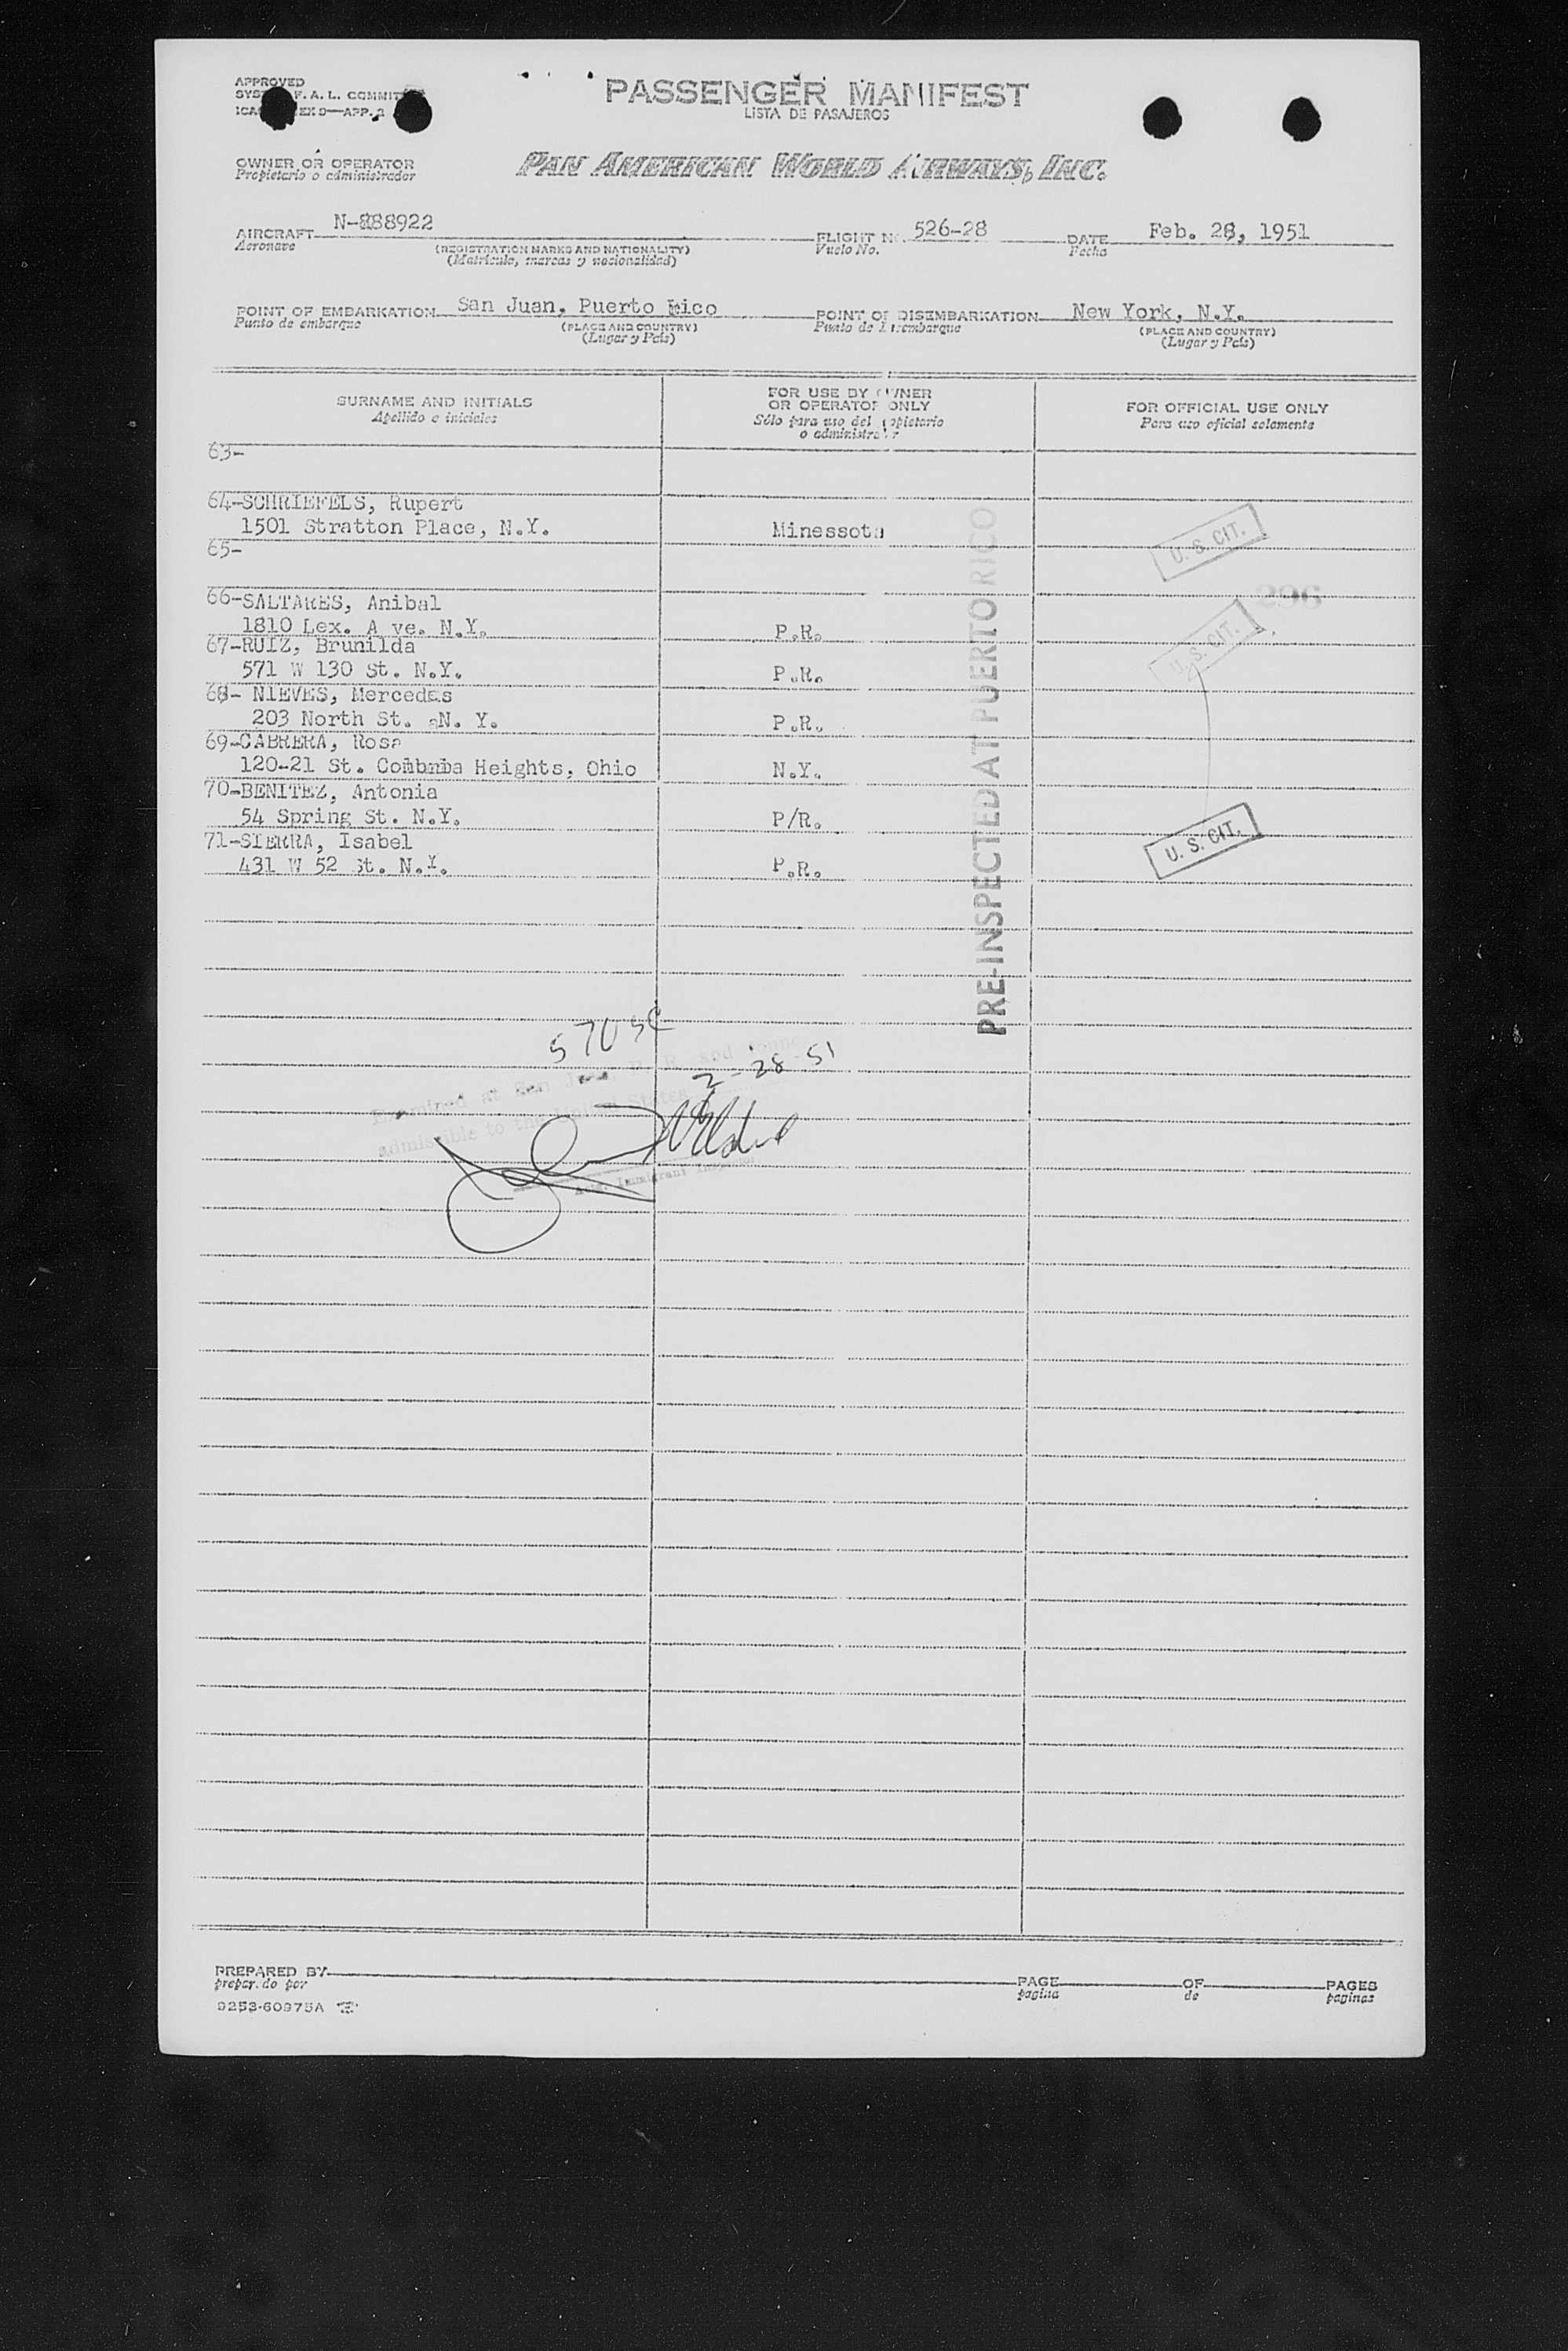 APPROVED
F. A. L.
PASSENGER MANIFEST
LISTA DE PASAJEROS
OWNER OR OPERATOR
Propietario o administrador
PAN AMERICAN WORLD AIRWAYS, INC.
AIRCRAFT N-888922 FLIGHT No. 526-28 DATE Feb. 28, 1951
Aeronave (REGISTRATION MARKS AND NATIONALITY) Vuelo No. Fecha
(Matrícula, marcas y nacionalidad)
POINT OF EMBARKATION San Juan, Puerto Rico POINT OF DISEMBARKATION New York, N.Y.
Punto de embarque (PLACE AND COUNTRY) Punto de (PLACE AND COUNTRY)
(Lugar y País) (Lugar y País)
SURNAME AND INITIALS
Apellido e iniciales
FOR USE BY OWNER
OR OPERATOR ONLY
Sólo para uso del propietario
o administrador
FOR OFFICIAL USE ONLY
Para uso oficial solamente
63-
64-SCHRIEFELS, Rupert
1501 Stratton Place, N.Y. Minessota U. S. CIT.
65-
296
66-SALTARES, Anibal
1810 Lex. A ve. N.Y. P.R. U. S. CIT.
67-RUIZ, Brunilda
571 W 130 St. N.Y. P.R.
68- NIEVES, Mercedes
203 North St. N. Y. P.R.
69-CABRERA, Rosa
120-21 St. Heights, Ohio N.Y.
70-BENITEZ, Antonia
54 Spring St. N.Y. P/R.
71-SIERRA, Isabel U. S. CIT.
431 W 52 St. N.Y. P.R.
PRE-INSPECTED AT PUERTO RICO
2-28-51
Examined at San and
admissible to the United States
Immigrant Inspector
PREPARED BY PAGE OF PAGES
preparado por pagina de paginas
9253-60975A